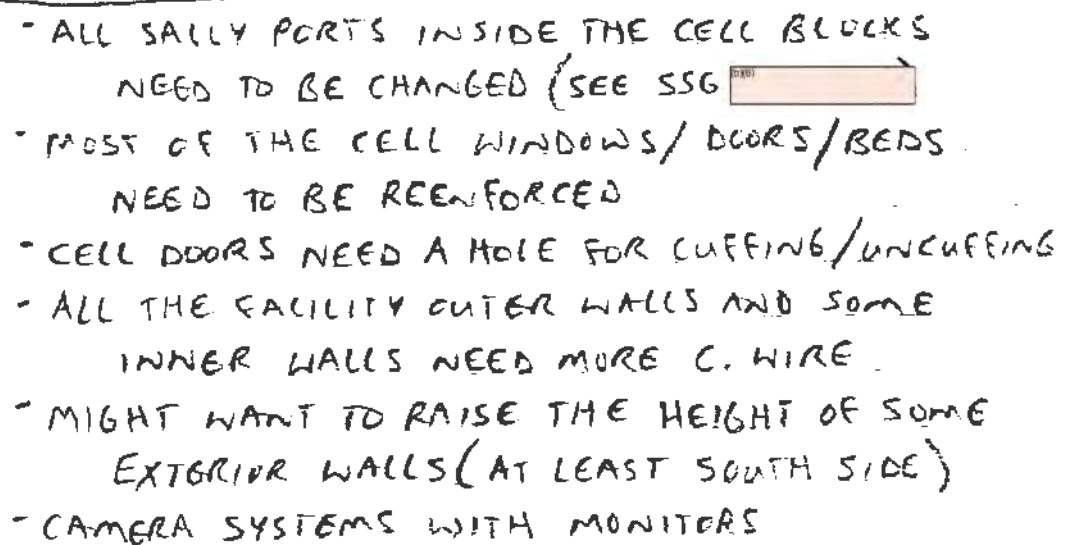 - ALL SALLY PORTS INSIDE THE CELL BLOCKS
NEED TO BE CHANGED (SEE SSG (b)(6)
- MOST OF THE CELL WINDOWS/DOORS/BEDS
NEED TO BE REENFORCED
- CELL DOORS NEED A HOLE FOR CUFFING/UNCUFFING
- ALL THE FACILITY OUTER WALLS AND SOME
INNER WALLS NEED MORE C. WIRE
- MIGHT WANT TO RAISE THE HEIGHT OF SOME
EXTERIOR WALLS (AT LEAST SOUTH SIDE)
- CAMERA SYSTEMS WITH MONITORS